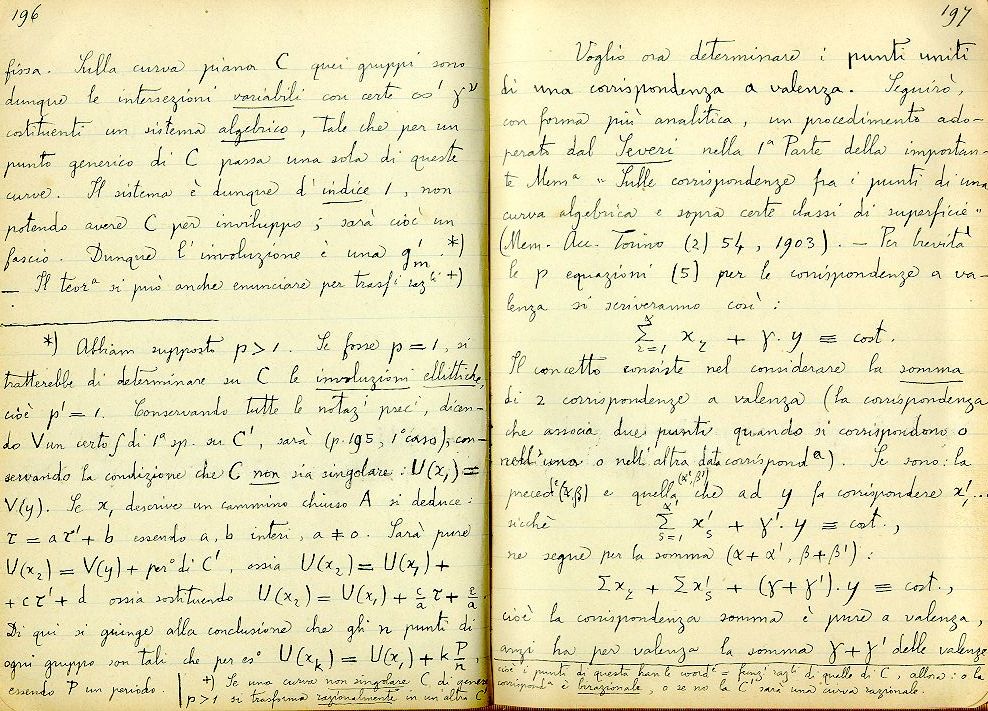 196
fissa. Sulla curva piana C quei gruppi sono
dunque le intersezioni variabili con certe ∞¹ γ^ν
costituenti un sistema algebrico, tale che per un
punto generico di C passa una sola di queste
curve. Il sistema è dunque d'indice 1, non
potendo avere C per inviluppo; sarà cioè un
fascio. Dunque l'involuzione è una g'm. *)
— Il teorª si può anche enunciare per trasfⁱ razˡⁱ +)
*) Abbiam supposto p>1. Se fosse p=1, si
tratterebbe di determinare su C le involuzioni ellittiche,
cioè p'=1. Conservando tutte le notazⁱ precⁱ, dicen-
do V un certo ∫ di 1ª sp. su C', sarà (p. 195, 1° caso), con-
servando la condizione che C non sia singolare: U(x₁)=
V(y). Se x₁ descrive un cammino chiuso A si deduce:
τ = aτ' + b essendo a, b interi, a≠0. Sarà pure
U(x₂) = V(y) + per° di C', ossia U(x₂) = U(x₁) +
+cτ'+d ossia sostituendo U(x₂) = U(x₁) + c/a τ + e/a.
Di qui si giunge alla conclusione che gli n punti di
ogni gruppo son tali che per es° U(x_k) = U(x₁) + k P/n,
essendo P un periodo.
+) Se una curva non singolare C di genere
p>1 si trasforma razionalmente in un'altra C'
197
Voglio ora determinare i punti uniti
di una corrispondenza a valenza. Seguirò,
con forma più analitica, un procedimento ado-
perato dal Severi nella 1ª Parte della importan-
te Memª "Sulle corrispondenze fra i punti di una
curva algebrica e sopra certe classi di superficie"
(Mem. Acc. Torino (2) 54, 1903). — Per brevità
le p equazioni (5) per le corrispondenze a va-
lenza si scriveranno così:
Σ^α_{r=1} x_r + γ·y ≡ cost.
Il concetto consiste nel considerare la somma
di 2 corrispondenze a valenza (la corrispondenza
che associa due punti quando si corrispondono o
nell'una o nell'altra data corrispondª). Se sono: la
precedᵉ (α,β) e quella (α',β') che ad y fa corrispondere x'₁...
sicchè Σ^α'_{s=1} x'_s + γ'·y ≡ cost.,
ne segue per la somma (α+α', β+β'):
Σx_r + Σx'_s + (γ+γ')·y ≡ cost.,
cioè la corrispondenza somma è pure a valenza,
anzi ha per valenza la somma γ+γ' delle valenze
cioè i punti di questa han le coordᵉ = funzⁱ razˡⁱ di quelle di C, allora: o la
corrispondª è birazionale, o se no la C' sarà una curva razionale.